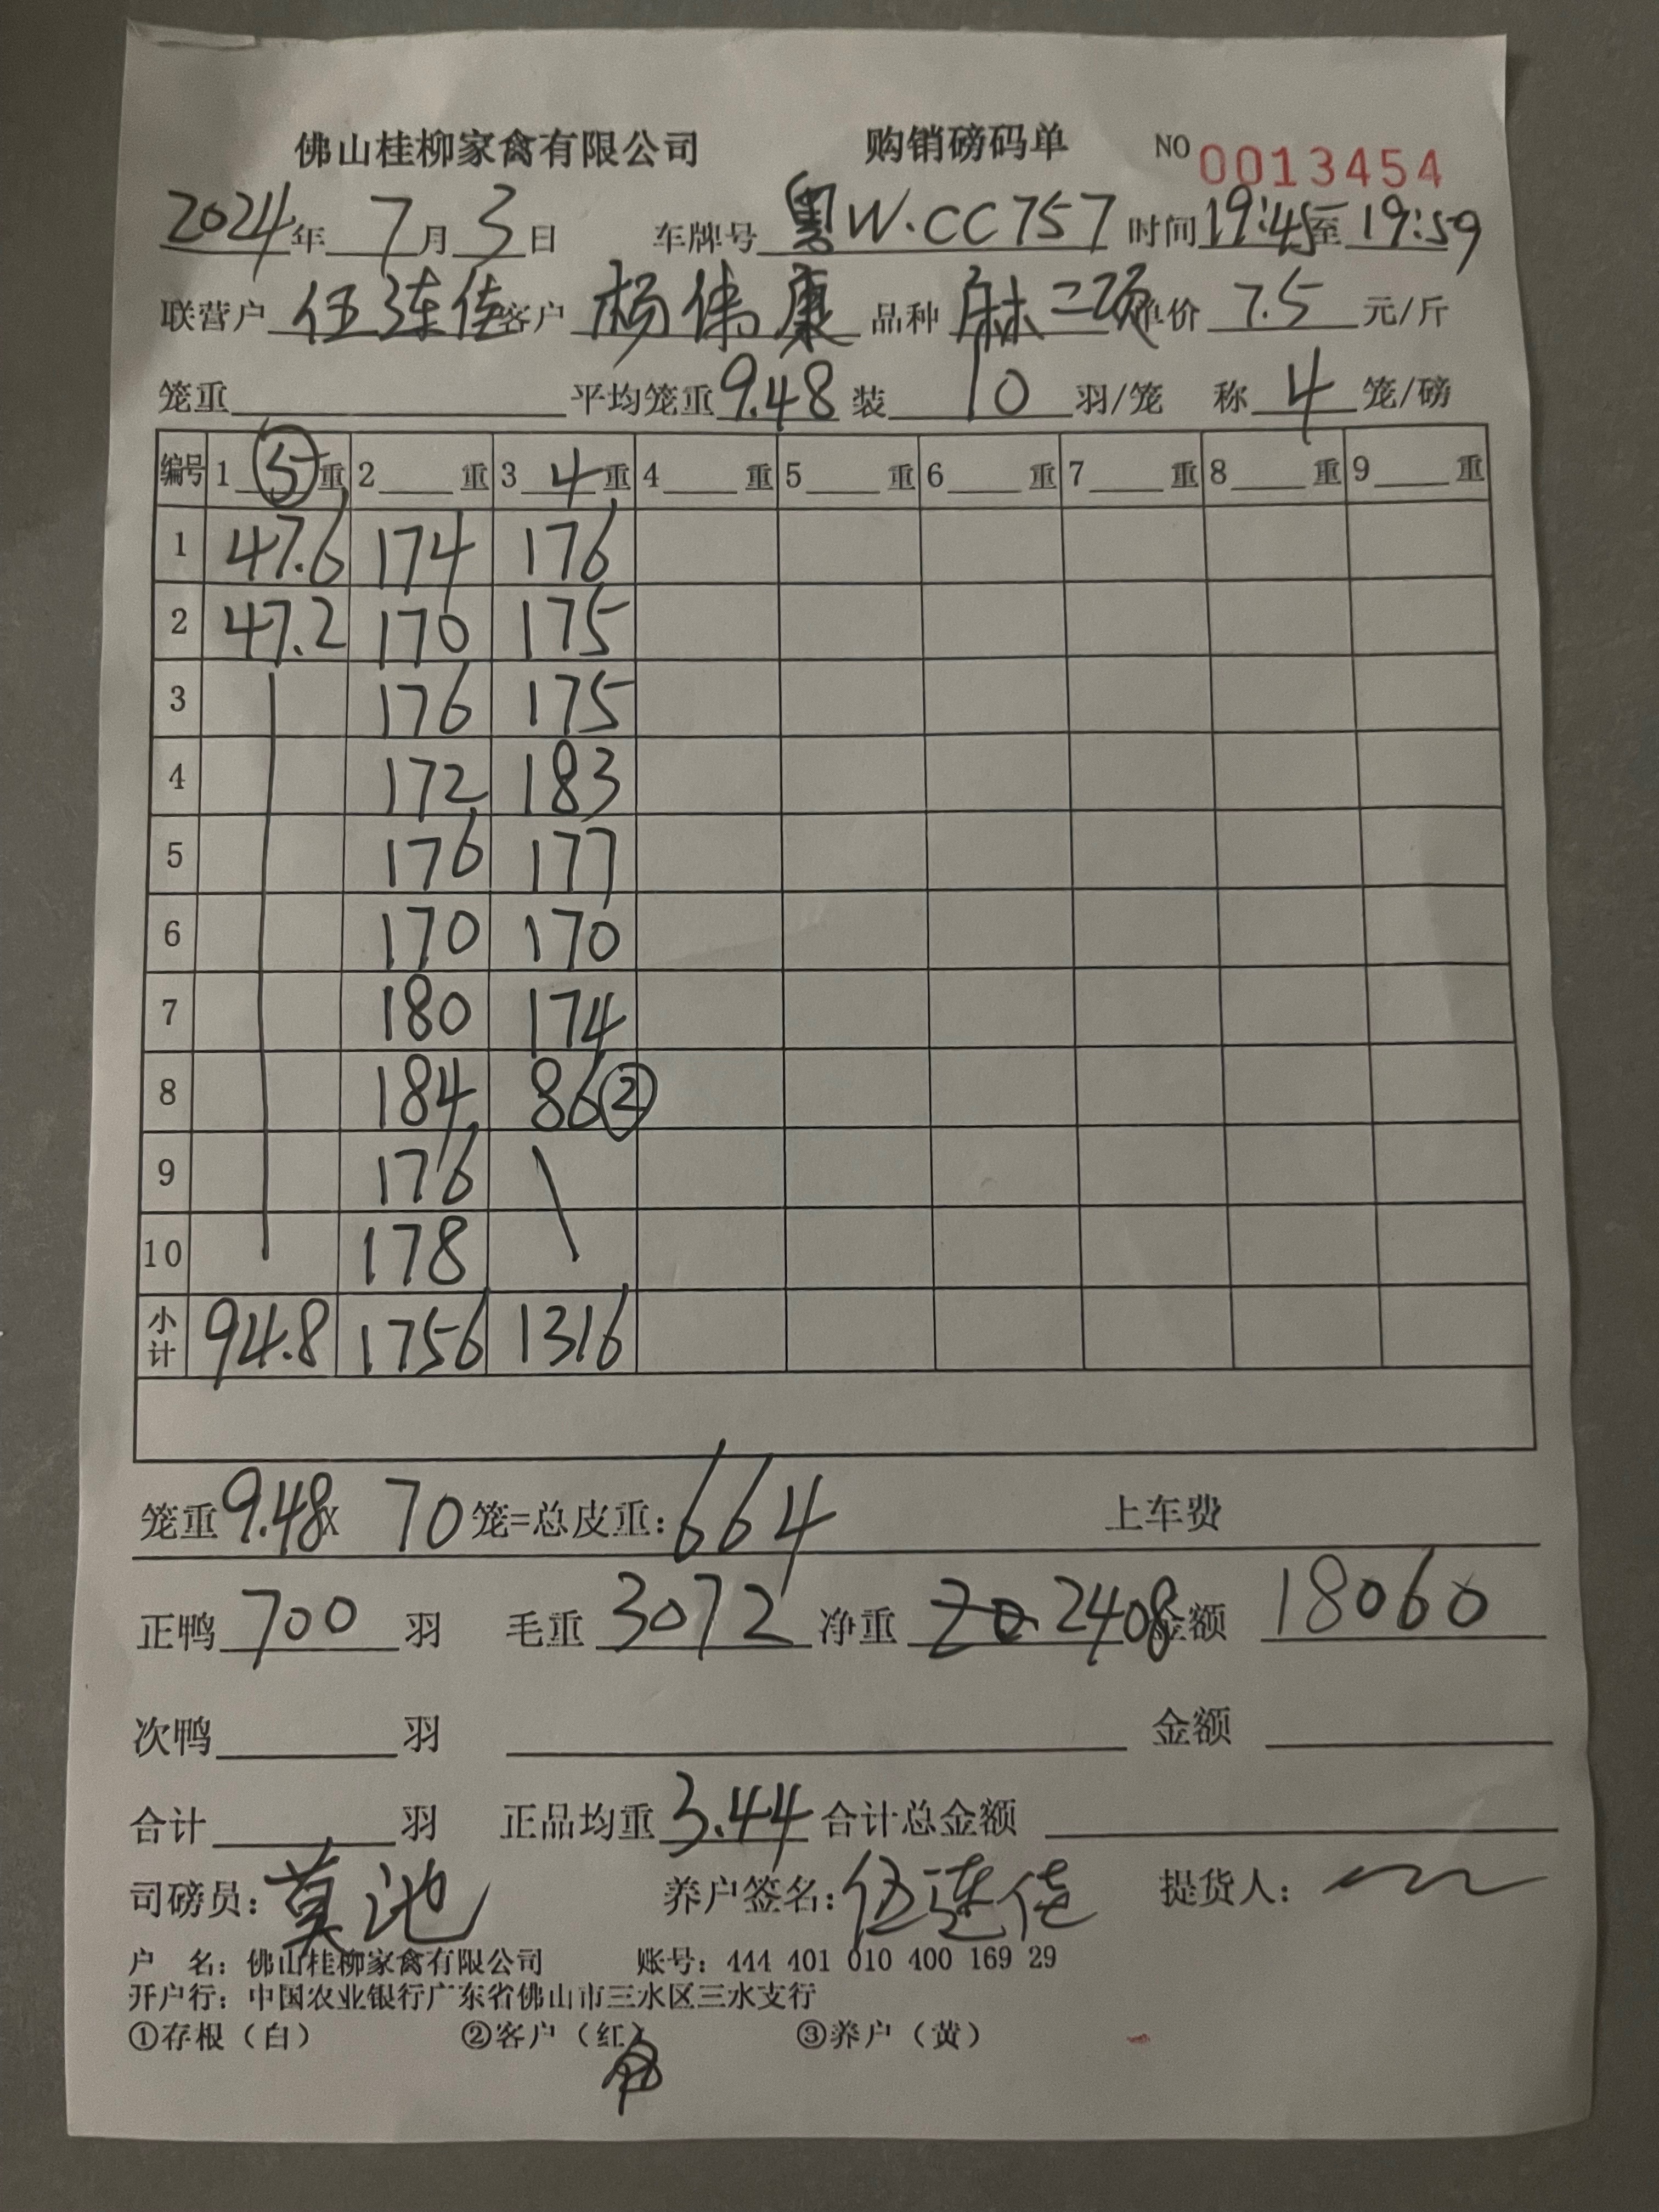 佛山桂柳家禽有限公司 购销磅码单 NO 0013454
2024年 7月 3日 车牌号 粤W·CC757 时间 19:45至 19:59
联营户 伍连佳 客户 杨伟康 品种 麻二项 单价 7.5 元/斤
笼重 平均笼重 9.48 装 10 羽/笼 称 4 笼/磅
编号 1 5 重 2 重 3 4 重 4 重 5 重 6 重 7 重 8 重 9 重
1 47.6 174 176
2 47.2 170 175
3 176 175
4 172 183
5 176 177
6 170 170
7 180 174
8 184 86 ②
9 176
10 178
小计 94.8 1756 1316
笼重 9.48 X 70 笼=总皮重: 664 上车费
正鸭 700 羽 毛重 3072 净重 2408 金额 18060
次鸭 羽 金额
合计 羽 正品均重 3.44 合计总金额
司磅员: 莫池 养户签名: 伍连佳 提货人:
户 名: 佛山桂柳家禽有限公司 账号: 444 401 010 400 169 29
开户行: 中国农业银行广东省佛山市三水区三水支行
①存根(白) ②客户(红) ③养户(黄)